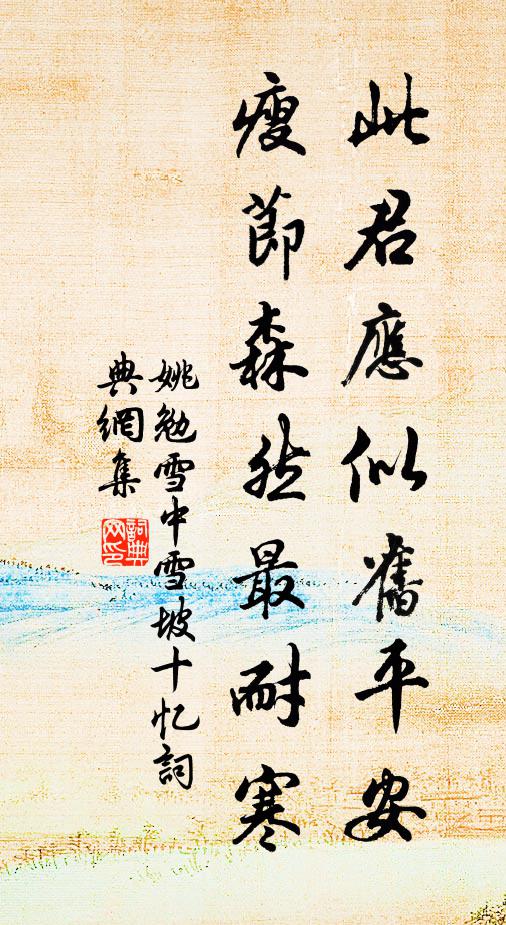 此君應似舊平安
瘦節森然最耐寒
姚勉雪中雪坡十忆詞
典網集
詞典網印